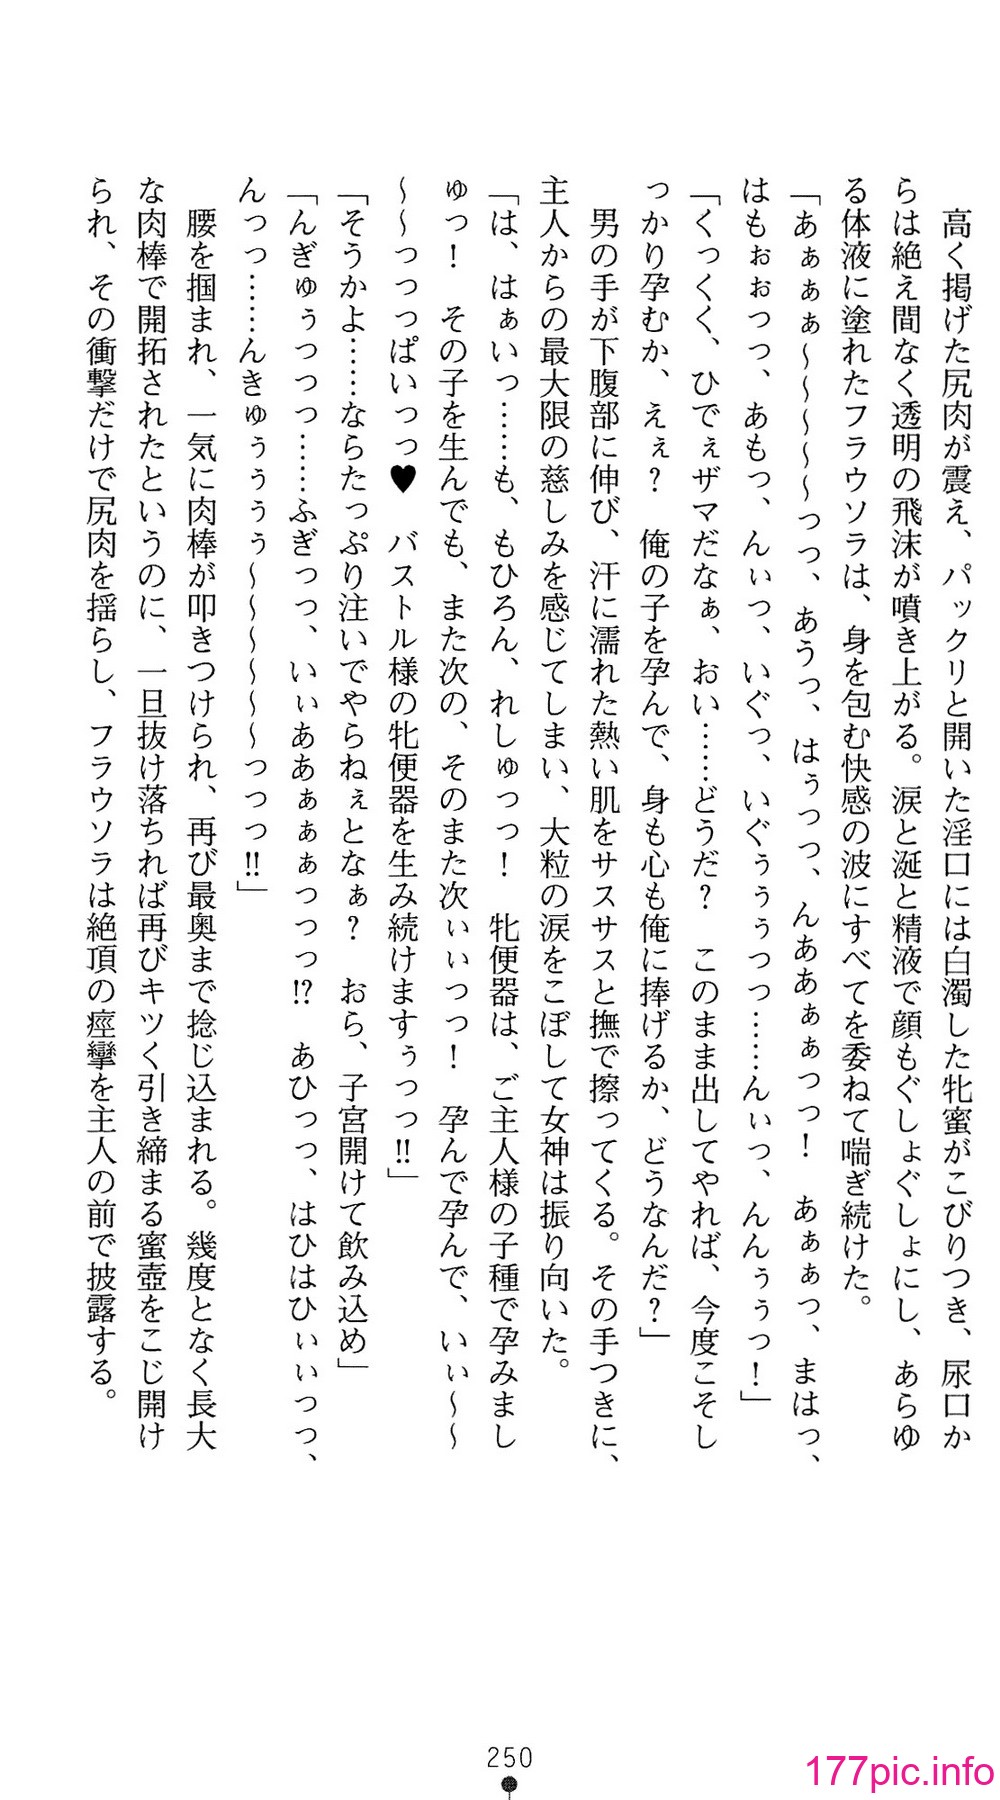 高く掲げた尻肉が震え、パックリと開いた淫口には白濁した牝蜜がこびりつき、尿口か
らは絶え間なく透明の飛沫が噴き上がる。涙と涎と精液で顔もぐしょぐしょにし、あらゆ
る体液に塗れたフラウソラは、身を包む快感の波にすべてを委ねて喘ぎ続けた。
「あぁぁぁ～～～～～っっ、あうっ、はぅっっ、んああぁぁっっ！　あぁぁっ、まはっ、
はもぉぉっっ、あもっ、んぃっ、いぐっ、いぐぅぅぅっっ……んぃっ、んんぅぅっ！」
「くっくく、ひでぇザマだなぁ、おい……どうだ？　このまま出してやれば、今度こそし
っかり孕むか、えぇ？　俺の子を孕んで、身も心も俺に捧げるか、どうなんだ？」
　男の手が下腹部に伸び、汗に濡れた熱い肌をサスサスと撫で擦ってくる。その手つきに、
主人からの最大限の慈しみを感じてしまい、大粒の涙をこぼして女神は振り向いた。
「は、はぁいっ……も、もひろん、れしゅっっ！　牝便器は、ご主人様の子種で孕みまし
ゅっ！　その子を生んでも、また次の、そのまた次ぃぃっっ！　孕んで孕んで、いぃ～～
～～っっっぱいっっ♥　バストル様の牝便器を生み続けますぅっっ!!」
「そうかよ……ならたっぷり注いでやらねぇとなぁ？　おら、子宮開けて飲み込め」
「んぎゅぅっっっ……ふぎっっ、いぃああぁぁぁっっっ!?　あひっっ、はひはひぃぃっっ、
んっっ……んきゅぅぅぅぅ～～～～～～っっっ!!」
　腰を掴まれ、一気に肉棒が叩きつけられ、再び最奥まで捻じ込まれる。幾度となく長大
な肉棒で開拓されたというのに、一旦抜け落ちれば再びキツく引き締まる蜜壺をこじ開け
られ、その衝撃だけで尻肉を揺らし、フラウソラは絶頂の痙攣を主人の前で披露する。
250
177pic.info